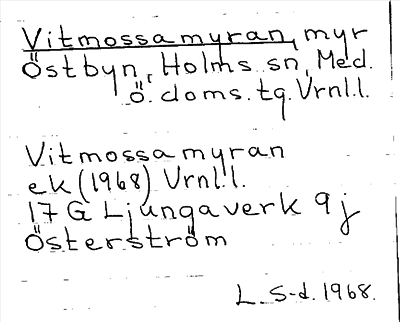 Vitmossamyran, myr
Östbyn, Holms sn, Med.
ö. doms. tg. Vrnl.l.
Vitmossamyran
ek (1968) Vrnl.l.
17 G Ljungaverk 9j
Österström
L. S-d. 1968.